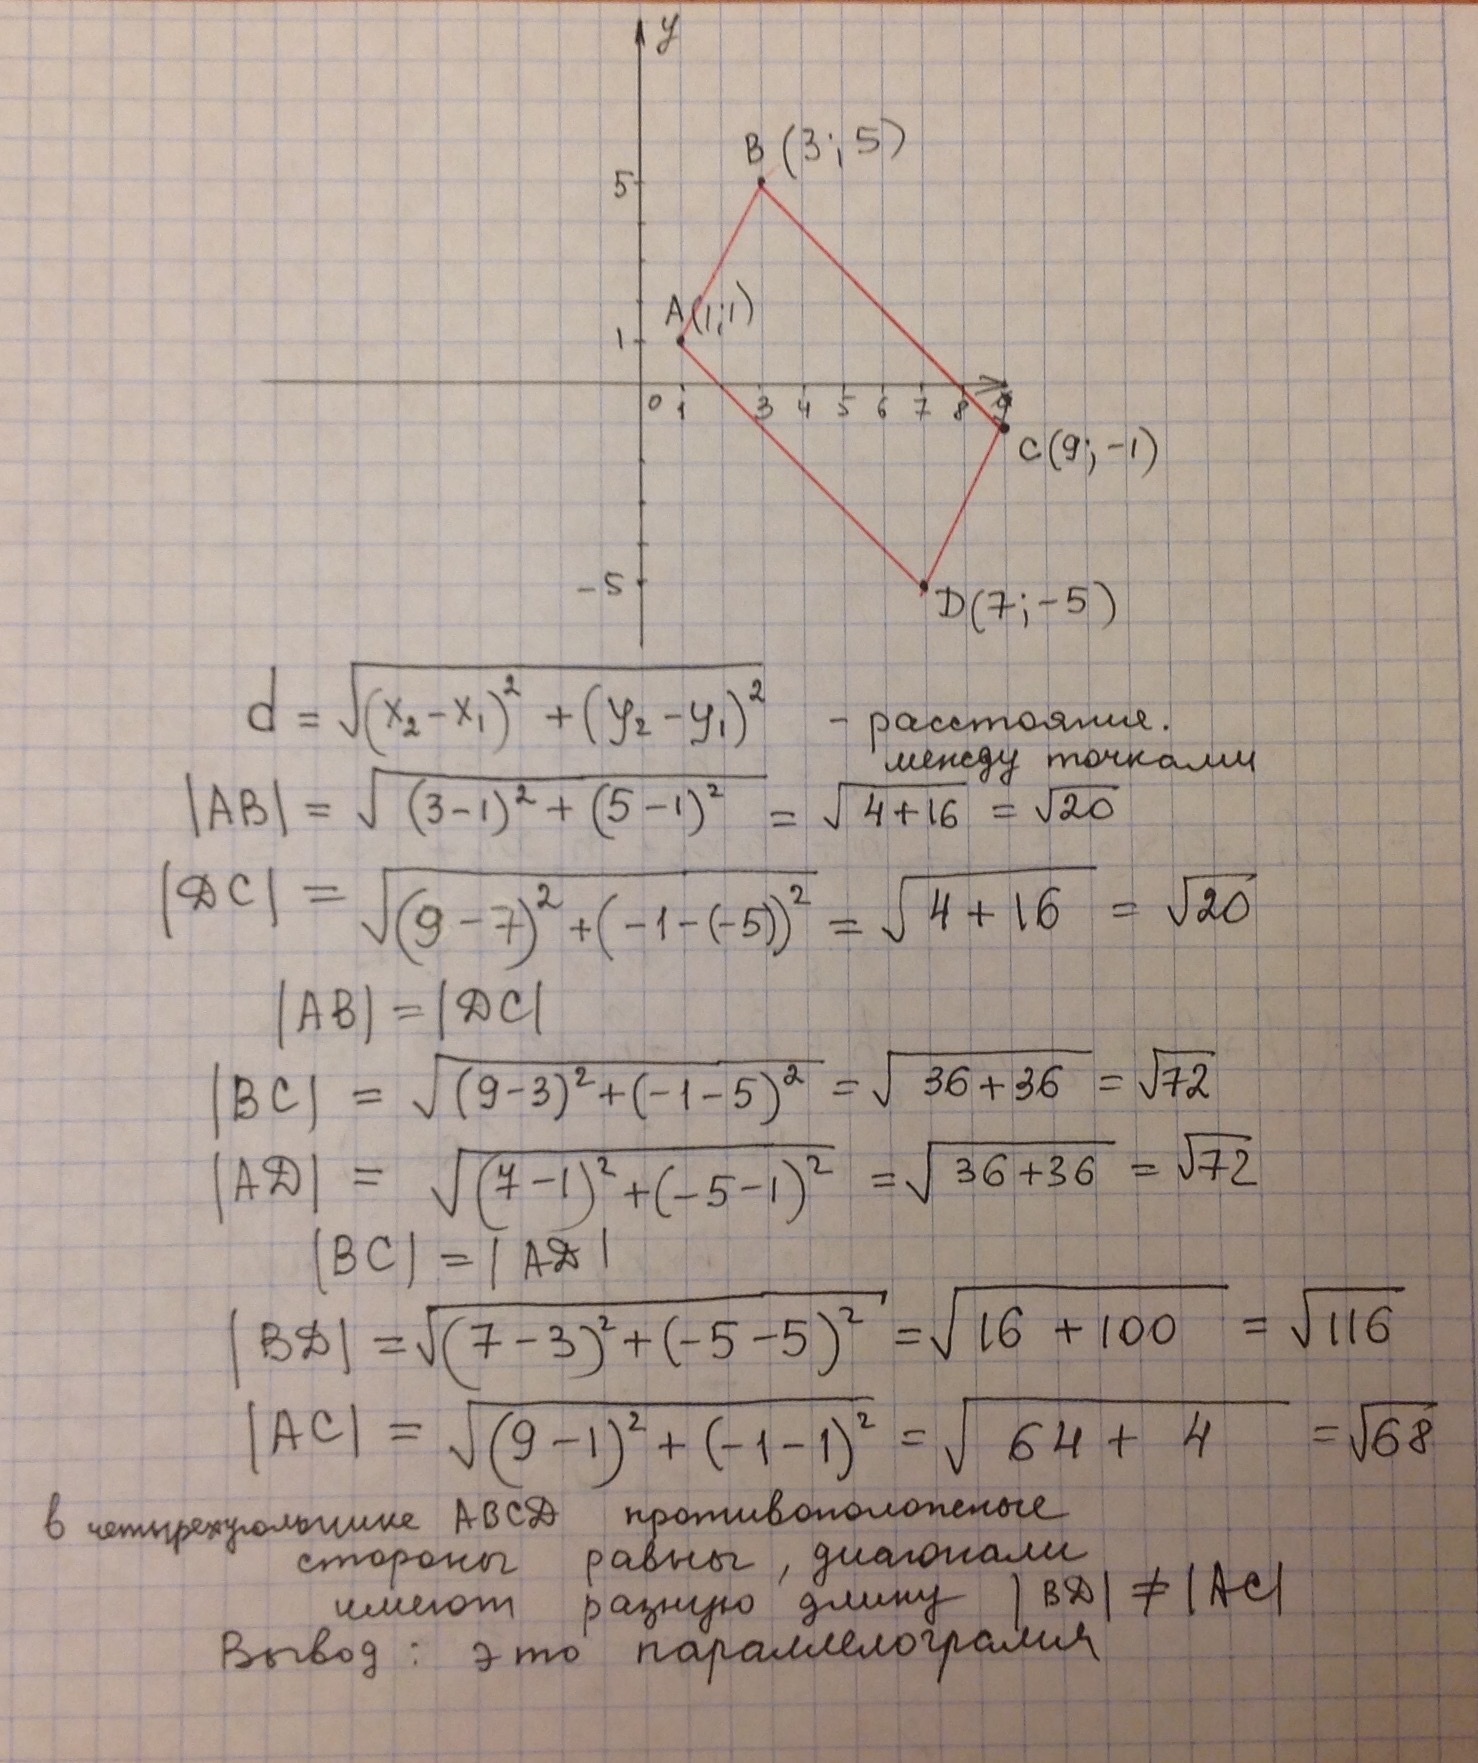 y
B (3; 5)
5
A(1;1)
1
0 1 3 4 5 6 7 8 9
C(9; -1)
-5
D(7; -5)
d = √(x₂ - x₁)² + (y₂ - y₁)² - расстояние.
между точками
|AB| = √(3-1)² + (5-1)² = √4+16 = √20
|DC| = √(9-7)² + (-1-(-5))² = √4+16 = √20
|AB| = |DC|
|BC| = √(9-3)² + (-1-5)² = √36+36 = √72
|AD| = √(7-1)² + (-5-1)² = √36+36 = √72
|BC| = |AD|
|BD| = √(7-3)² + (-5-5)² = √16+100 = √116
|AC| = √(9-1)² + (-1-1)² = √64+4 = √68
в четырехугольнике ABCD противоположные
стороны равны, диагонали
имеют разную длину |BD| ≠ |AC|
Вывод: это параллелограмм